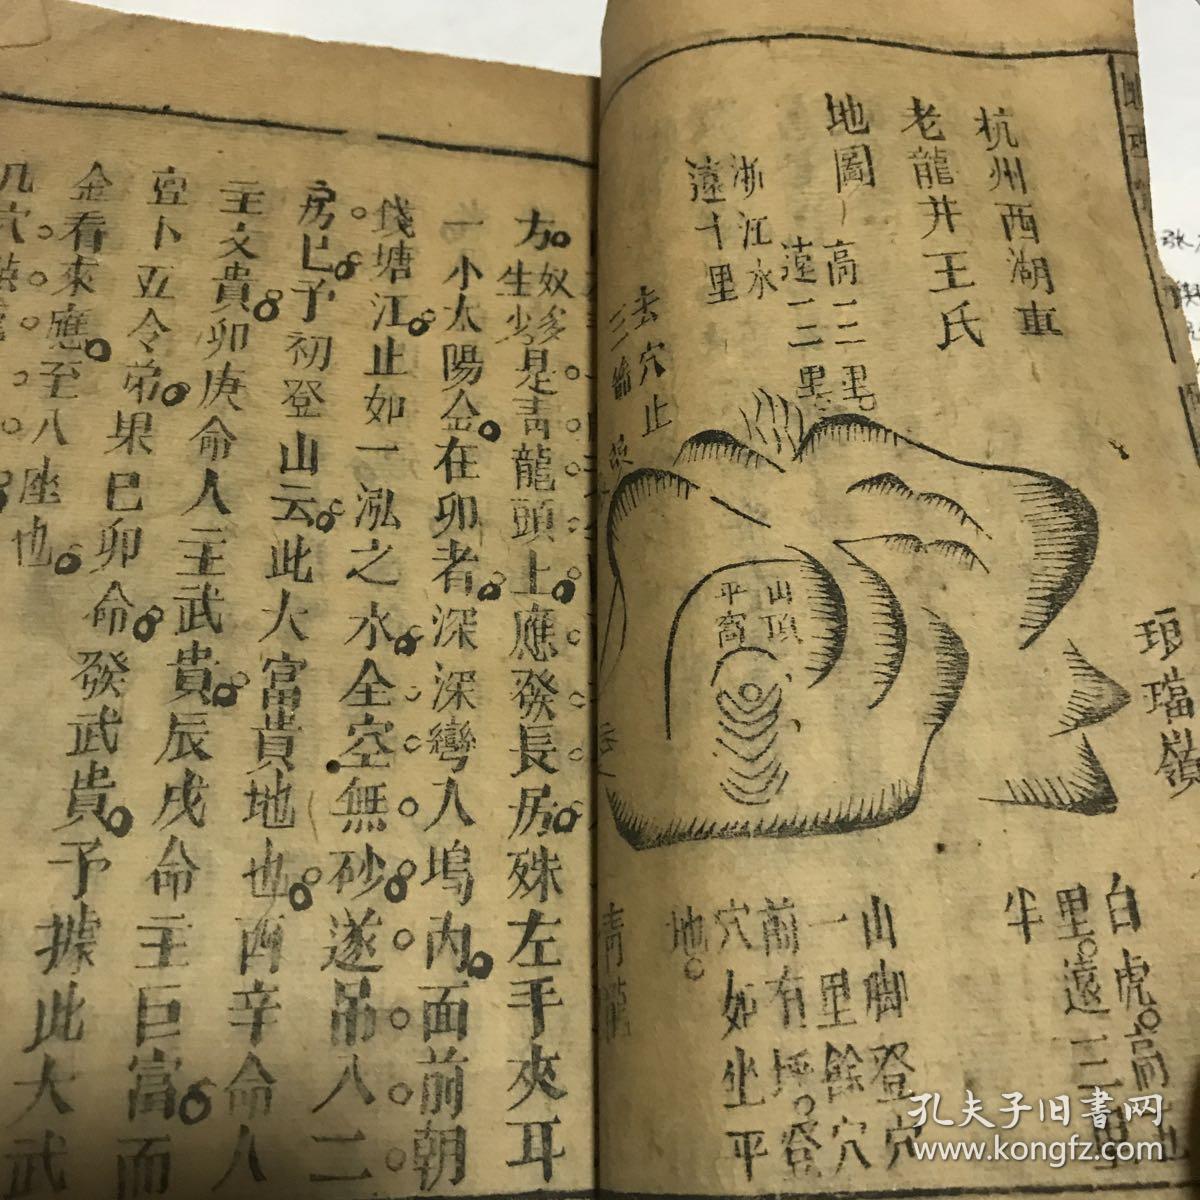 杭州西湖東
老龍井王氏
地圖
高二二里。
遠二二里
浙江水
遠十里
去穴止
山頂
平窩
瑯璫嶺
白虎。高
里。遠三里
半
山脚登穴
一里餘穴
前有坪。登
穴如坐平
地。
青龍
方。
奴多
生少
是青龍頭上。應發長房。殊左手夾耳
一小太陽金。在卯者。深深彎入塢內。面前朝
錢塘江。止如一泓之水。全空無砂。遂吊八二
房已。予初登山云。此大富貴地也。酉辛命人
主文貴。卯庚命人主武貴。辰戌命主巨富。而
壹卜五令弟。果巳卯命。發武貴。予據此大武
金看來。應至八座也。
孔夫子旧書网
www.kongfz.com